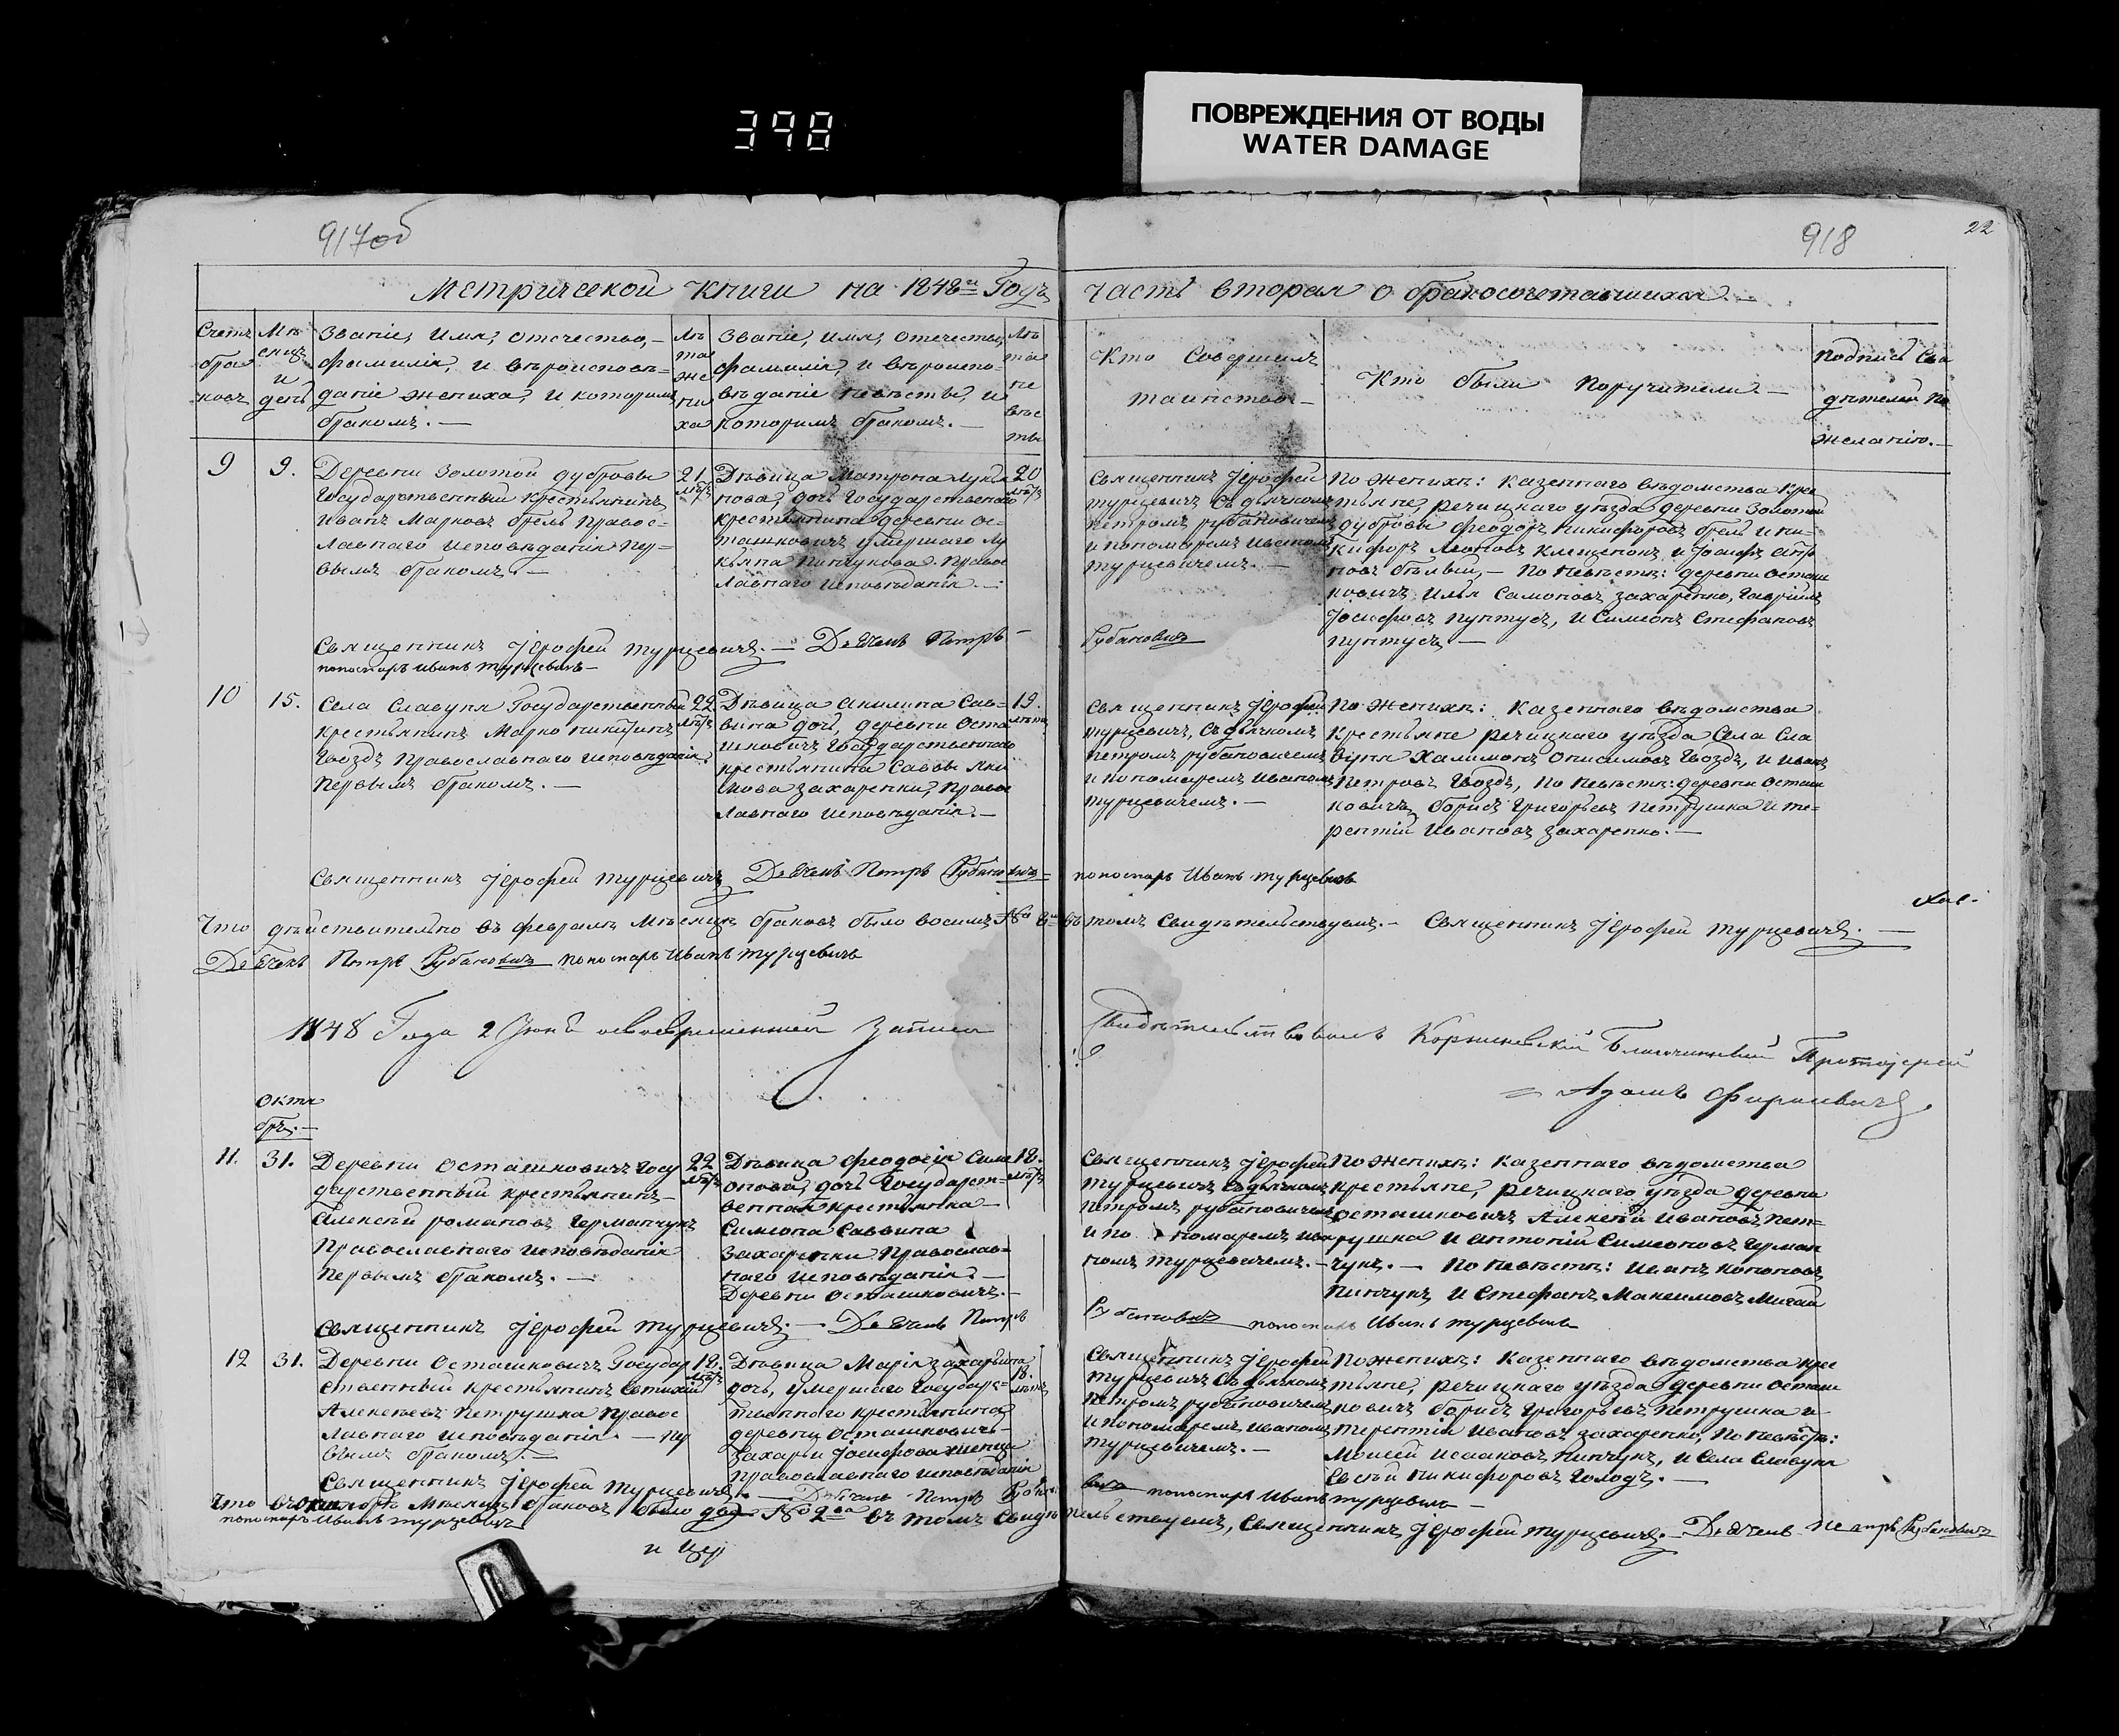 398
ПОВРЕЖДЕНИЯ ОТ ВОДЫ
WATER DAMAGE
917об
918
22
Метрической книги на 1848й Годъ
часть вторая о бракосочетавшихся.
Счетъ браковъ
Мѣсяцъ и день
Званіе, имя, отечество,
фамилія, и вѣроисповѣ=
даніе жениха, и которымъ
бракомъ.
Лѣта жениха
Званіе, имя, отечество,
фамилія, и вѣроиспо=
вѣданіе невѣсты, и
которымъ бракомъ.
Лѣта невѣсты
Кто совершилъ
таинство
Кто были поручители
Подпись сви
дѣтелей по
желанію.
9
9.
Деревни Золотой дубровы
Государственный крестьянинъ
Иванъ Марковъ брель правос=
лавнаго исповѣданія пер=
вымъ бракомъ.
21
лѣтъ
Дѣвица Матрона Лукья
нова, дочь Государственнаго
крестьянина деревни Ос=
ташковичъ умершаго Лу
кьяна Пинчукова правос
лавнаго исповѣданія.
20
лѣтъ
Священникъ Іерофей
Турцевичъ съ дьячкомъ
Петромъ Рубановичемъ
и пономаремъ Иваномъ
Турцевичемъ.
По женихѣ: Казеннаго вѣдомства кре
стьяне, речицкаго уѣзда деревни Золотой
дубровы Феодоръ Никифоровъ брель и Ни=
кифоръ Леоновъ Клещенокъ, и Іосифъ
новъ бѣлый, По невѣстѣ: деревни Осташ
ковичъ Илья Самоновъ Захаренко, Гавріилъ
Іосифовъ Пунтусъ, и Симеонъ Стефановъ
Пунтусъ
Священникъ Іерофей Турцевичъ. Дьячекъ Петръ
Рубановичъ
пономарь Иванъ Турцевичъ
10
15.
Села Славуня Государственный
крестьянинъ Марко Никитинъ
Гвоздъ Православнаго исповѣданія
первымъ бракомъ.
22
лѣтъ
Дѣвица Акилина Сав=
вина дочь, деревни Оста
шковичъ Государственнаго
крестьянина Саввы Яки
мова Захаренки, Правос
лавнаго исповѣданія.
19.
лѣтъ
Священникъ Іерофей
Турцевичъ, съ дьячкомъ
Петромъ Рубановичемъ
и пономаремъ Иваномъ
Турцевичемъ.
По женихѣ: Казеннаго вѣдомства
Крестьяне речицкаго уѣзда Села Сла
вуня Халимонъ Онисимовъ Гвоздъ, и Иванъ
Петровъ Гвоздъ, По невѣстѣ: деревни Осташ
ковичъ Борисъ Григорьевъ Петрушка и Те=
рентій Ивановъ Захаренко.
Священникъ Іерофей Турцевичъ Дьячекъ Петръ Рубановичъ
пономарь Иванъ Турцевичъ
Что дѣйствительно въ февралѣ мѣсяцѣ браковъ было восимъ № 8 въ томъ свидѣтельствуемъ. Священникъ Іерофей Турцевичъ.
Дьячекъ Петръ Рубановичъ пономарь Иванъ Турцевичъ
1848 Года 2 Іюня
Свидѣтельствовалъ Благочинный Протоіерей
Адамъ
Октя
брь.
11.
31.
Деревни Осташковичъ Госу
дарственный крестьянинъ
Алексѣй Романовъ Германчукъ
Православнаго исповѣданія
первымъ бракомъ.
22
лѣтъ
Дѣвица Феодосія Симе
онова, дочь Государст=
венная крестьянка
Симеона Саввина
Захаренки Православ=
наго исповѣданія.
Деревни Осташковичъ.
18.
лѣтъ
Священникъ Іерофей
Турцевичъ съ дьячкомъ
Петромъ Рубановичемъ
и по номаремъ Ива
номъ Турцевичемъ.
По женихѣ: Казеннаго вѣдомства
крестьяне, речицкаго уѣзда деревни
Осташковичъ Алексѣй Ивановъ Пет=
рушка и Антоній Симеоновъ Герман
чукъ. По невѣстѣ: Иванъ Кононовъ
Пинчукъ и Стефанъ Максимовъ
Священникъ Іерофей Турцевичъ. Дьячекъ Петръ
Рубановичъ пономарь Иванъ Турцевичъ
12
31.
Деревни Осташковичъ Государ
ственный крестьянинъ Евтихій
Алексѣевъ Петрушка правос
лавнаго исповѣданія. пер
вымъ бракомъ.
18.
лѣтъ
Дѣвица Марія Захарьина
дочь, умершаго Государс=
твеннаго крестьянина
деревни Осташковичъ
Захарія Іосифова
Православнаго исповѣданія
18.
лѣтъ
Священникъ Іерофей
Турцевичъ съ дьячкомъ
Петромъ Рубановичемъ
и пономаремъ Иваномъ
Турцевичемъ.
По женихѣ: Казеннаго вѣдомства кре
стьяне, речицкаго уѣзда деревни Осташ
ковичъ Борисъ Григорьевъ Петрушка и
Терентій Ивановъ Захаренко, По невѣстѣ:
Моисей Исааковъ Пинчукъ, и Села Славуня
Евсѣй Никифоровъ Голодъ.
Священникъ Іерофей Турцевичъ. Дьячекъ Петръ Рубановичъ пономарь Иванъ Турцевичъ
Что въ октябрѣ мѣсяцѣ браковъ было два № 2ва въ томъ свидѣтельствуемъ, Священникъ Іерофей Турцевичъ. Дьячекъ Петръ Рубановичъ
пономарь Иванъ Турцевичъ